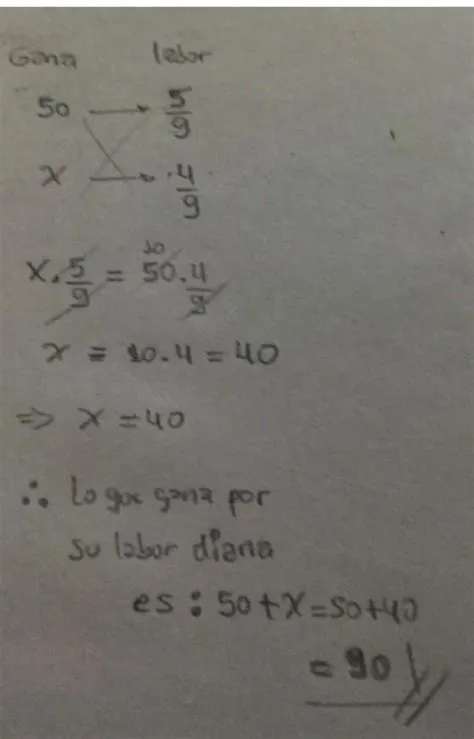 Gana labor
50 → 5/9
x → 4/9
x . 5/9 = 50 . 4/9
10
x = 10 . 4 = 40
⇒ x = 40
∴ Lo que gana por
su labor diaria
es : 50 + x = 50 + 40
= 90